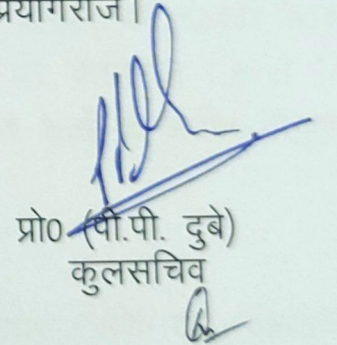 प्रयागराज।
प्रो0 (पी.पी. दुबे)
कुलसचिव